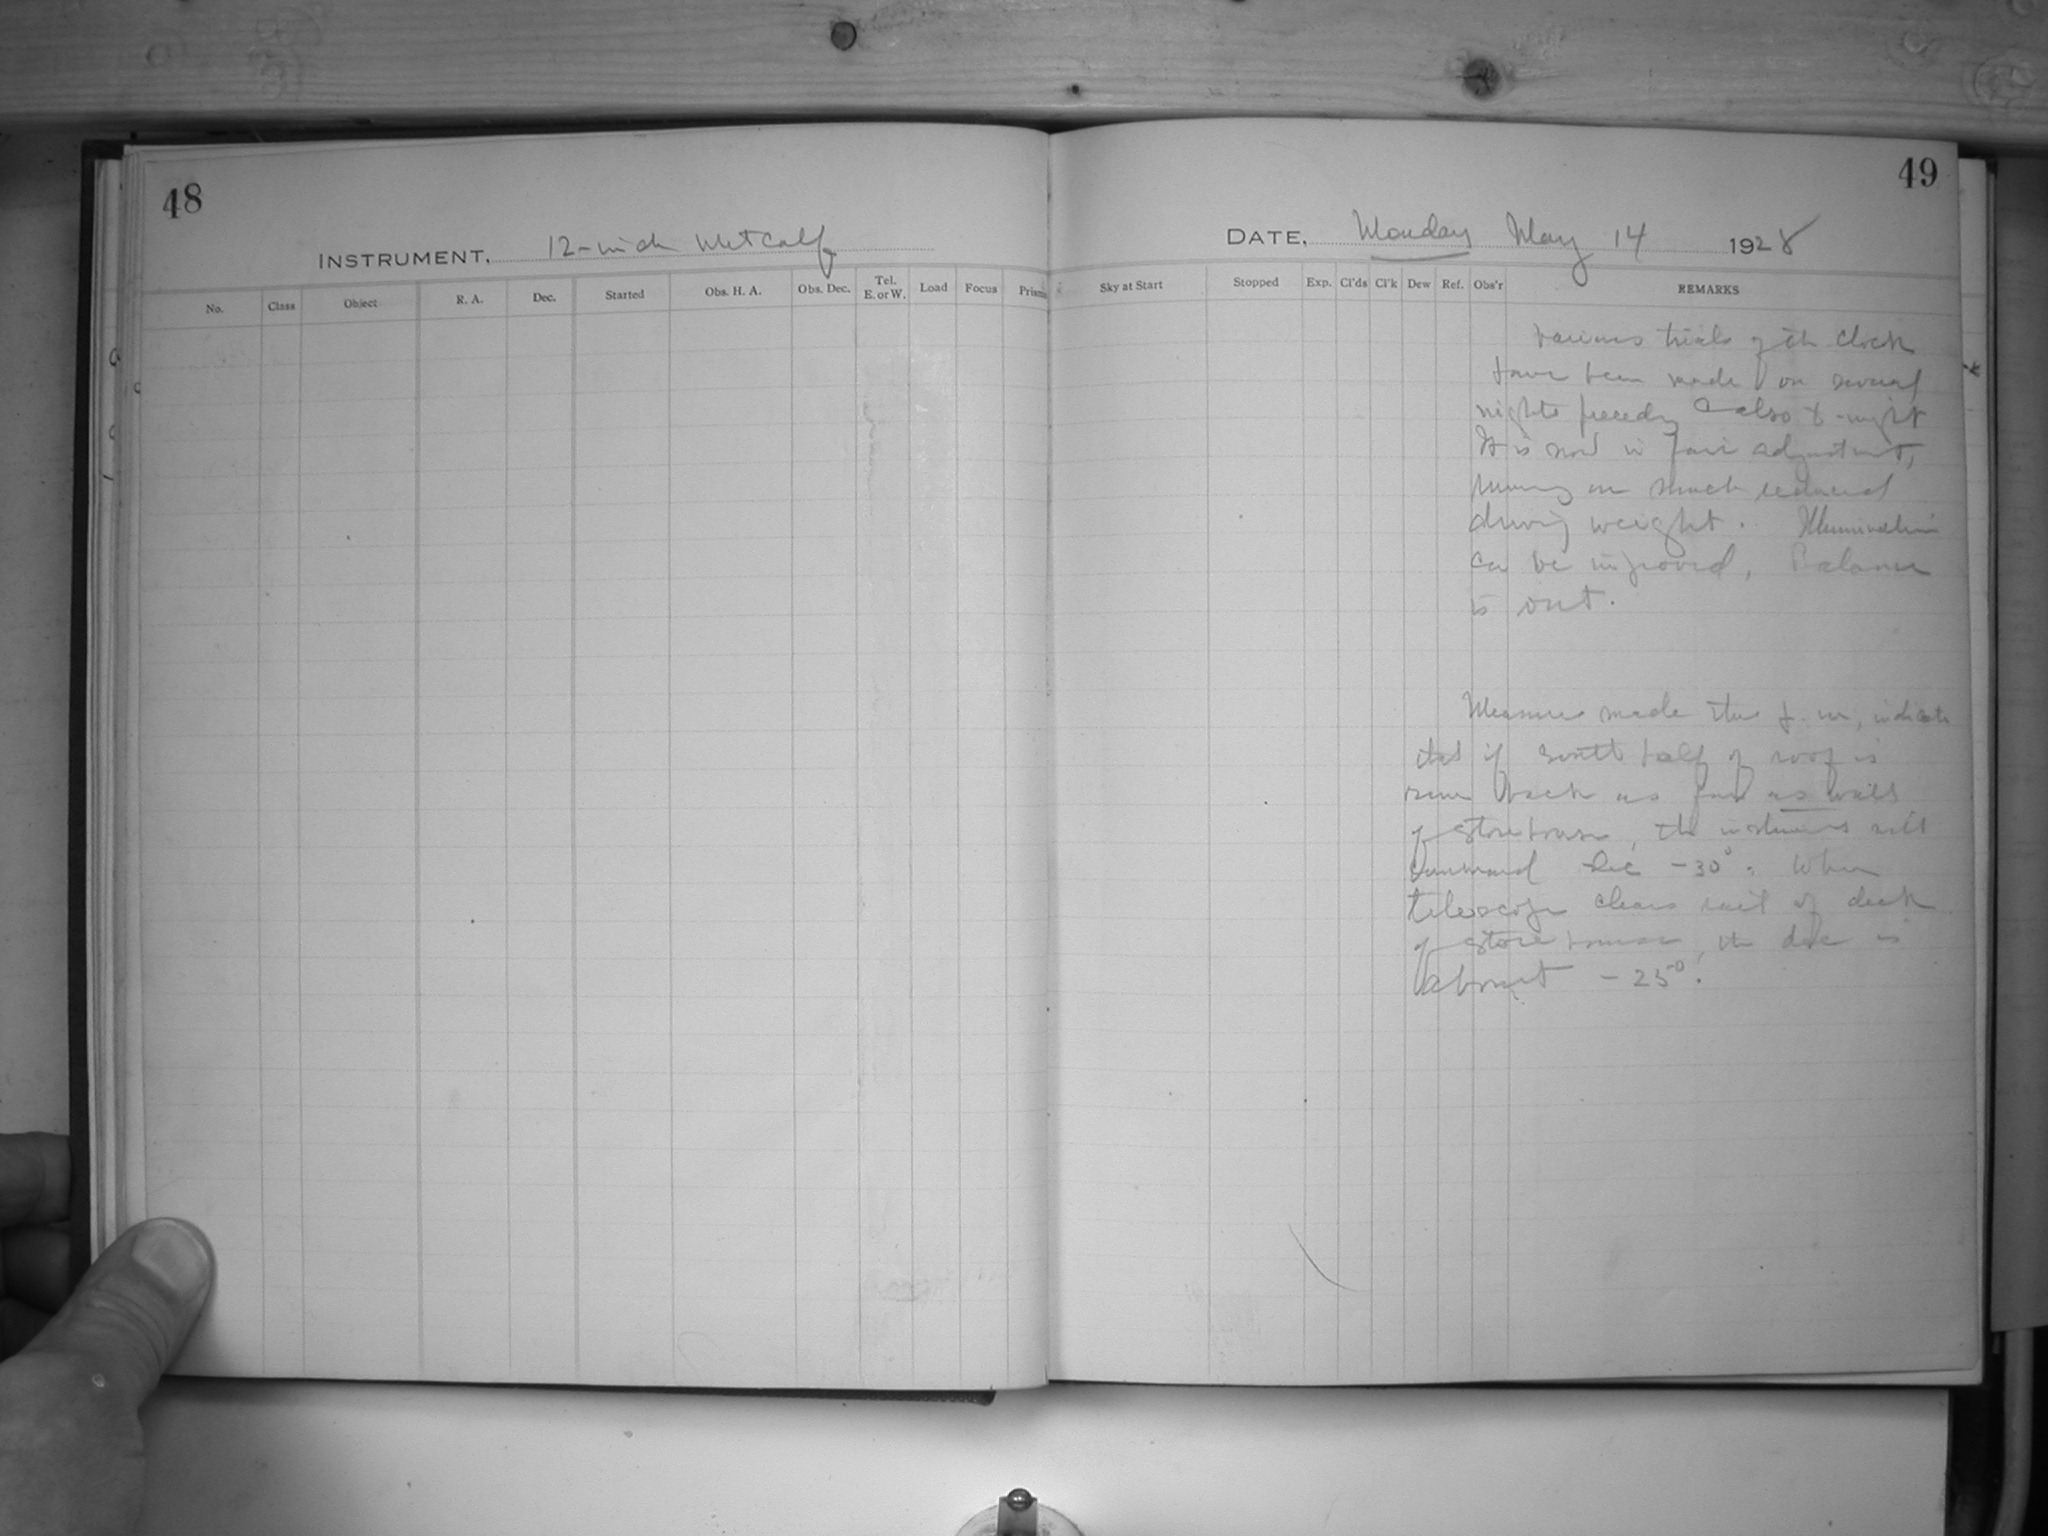 48
INSTRUMENT, 12-inch Metcalf
No. Class Object R. A. Dec. Started Obs. H. A. Obs. Dec. Tel. E. or W. Load Focus Prism
49
DATE, Monday May 14 1928
Sky at Start Stopped Exp. Cl'ds Cl'k Dew Ref. Obs'r REMARKS
Various trials of the clock
have been made on several
nights preceding & also to-night
It is now in fair adjustment,
running on much reduced
driving weight. Illumination
can be improved, Balance
is out.
Measures made this P.M., indicate
that if south half of roof is
run back as far as walls
of storehouse, the instrument will
command Dec -30°. When
telescope clears rail of deck
of storehouse, the dec is
about -25°.